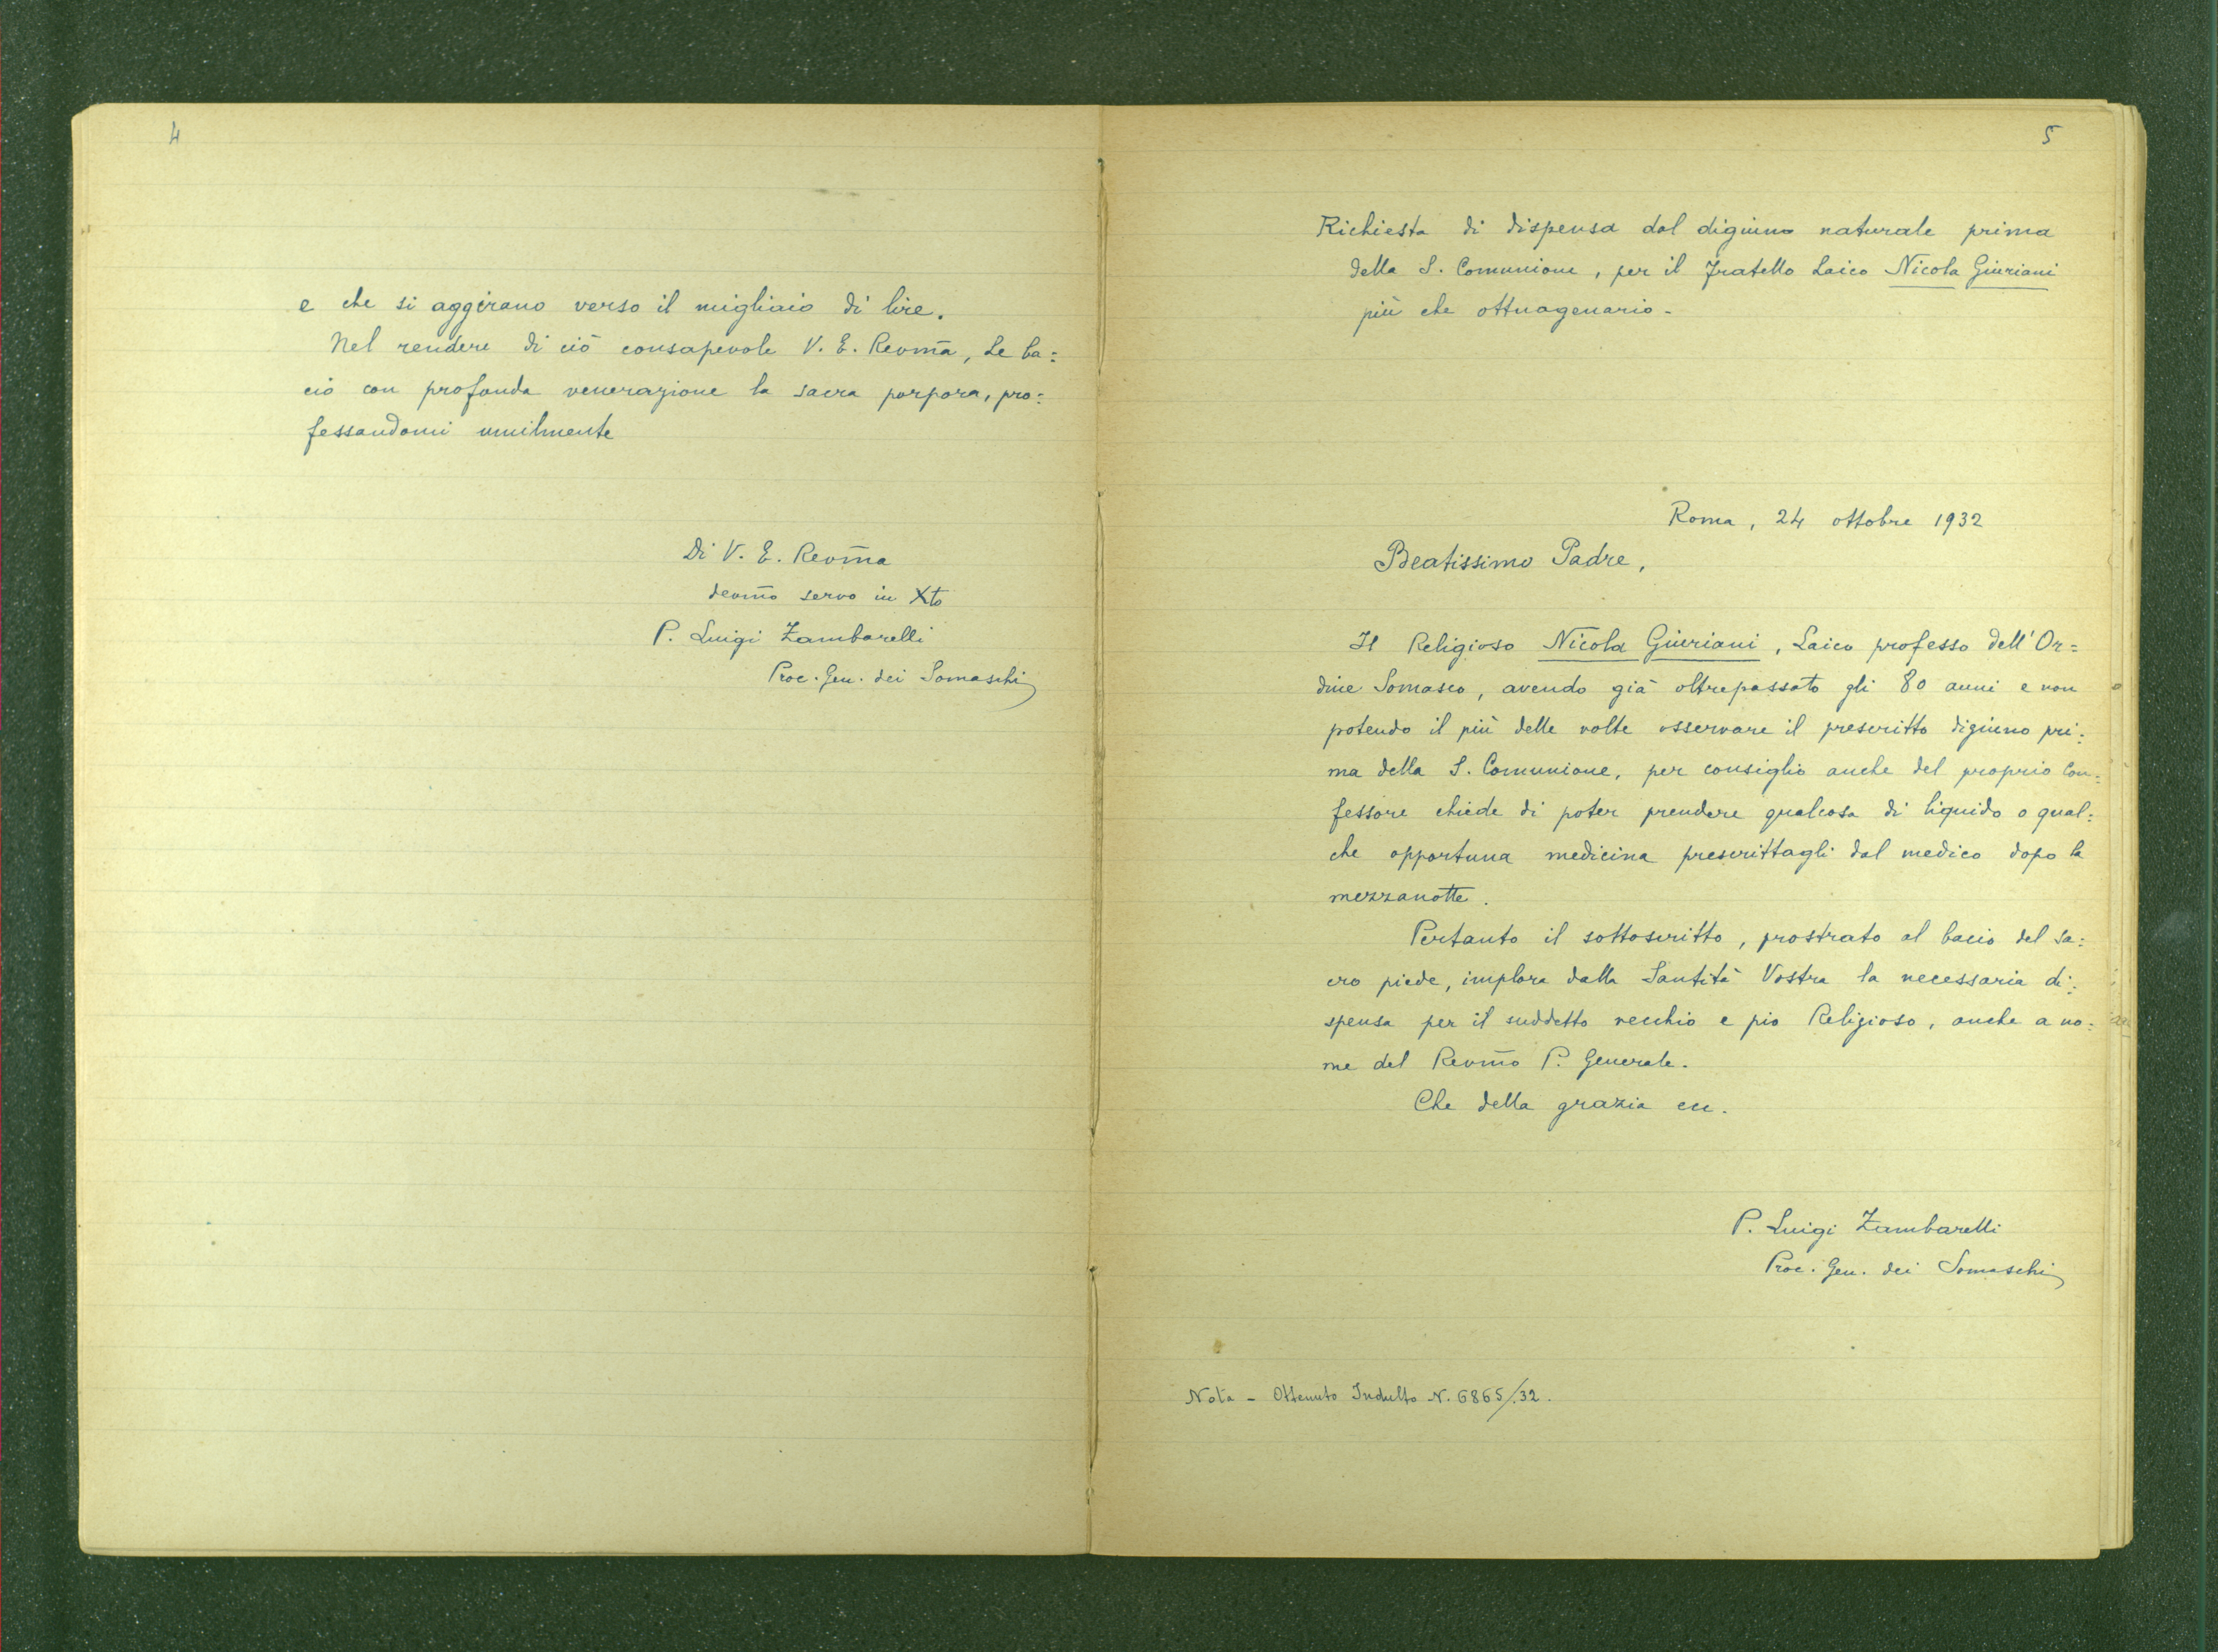 4
e che si aggirano verso il migliaio di lire.
Nel rendere di ciò consapevole V. E. Revm̃a, Le ba=
cio con profonda venerazione la sacra porpora, pro=
fessandomi umilmente
Di V. E. Revm̃a
devm̃o servo in Xto
P. Luigi Zambarelli
Proc. Gen. dei Somaschi
5
Richiesta di dispensa dal digiuno naturale prima
della S. Comunione, per il Fratello Laico Nicola Giuriani
più che ottuagenario.
Roma, 24 ottobre 1932
Beatissimo Padre,
Il Religioso Nicola Giuriani, Laico professo dell'Or=
dine Somasco, avendo già oltrepassato gli 80 anni e non
potendo il più delle volte osservare il prescritto digiuno pri=
ma della S. Comunione, per consiglio anche del proprio Con=
fessore chiede di poter prendere qualcosa di liquido o qual=
che opportuna medicina prescrittagli dal medico dopo la
mezzanotte.
Pertanto il sottoscritto, prostrato al bacio del sa=
cro piede, implora dalla Santità Vostra la necessaria di=
spensa per il suddetto vecchio e pio Religioso, anche a no=
me del Revm̃o P. Generale.
Che della grazia ecc.
P. Luigi Zambarelli
Proc. Gen. dei Somaschi
Nota - Ottenuto Indulto N. 6865/32.